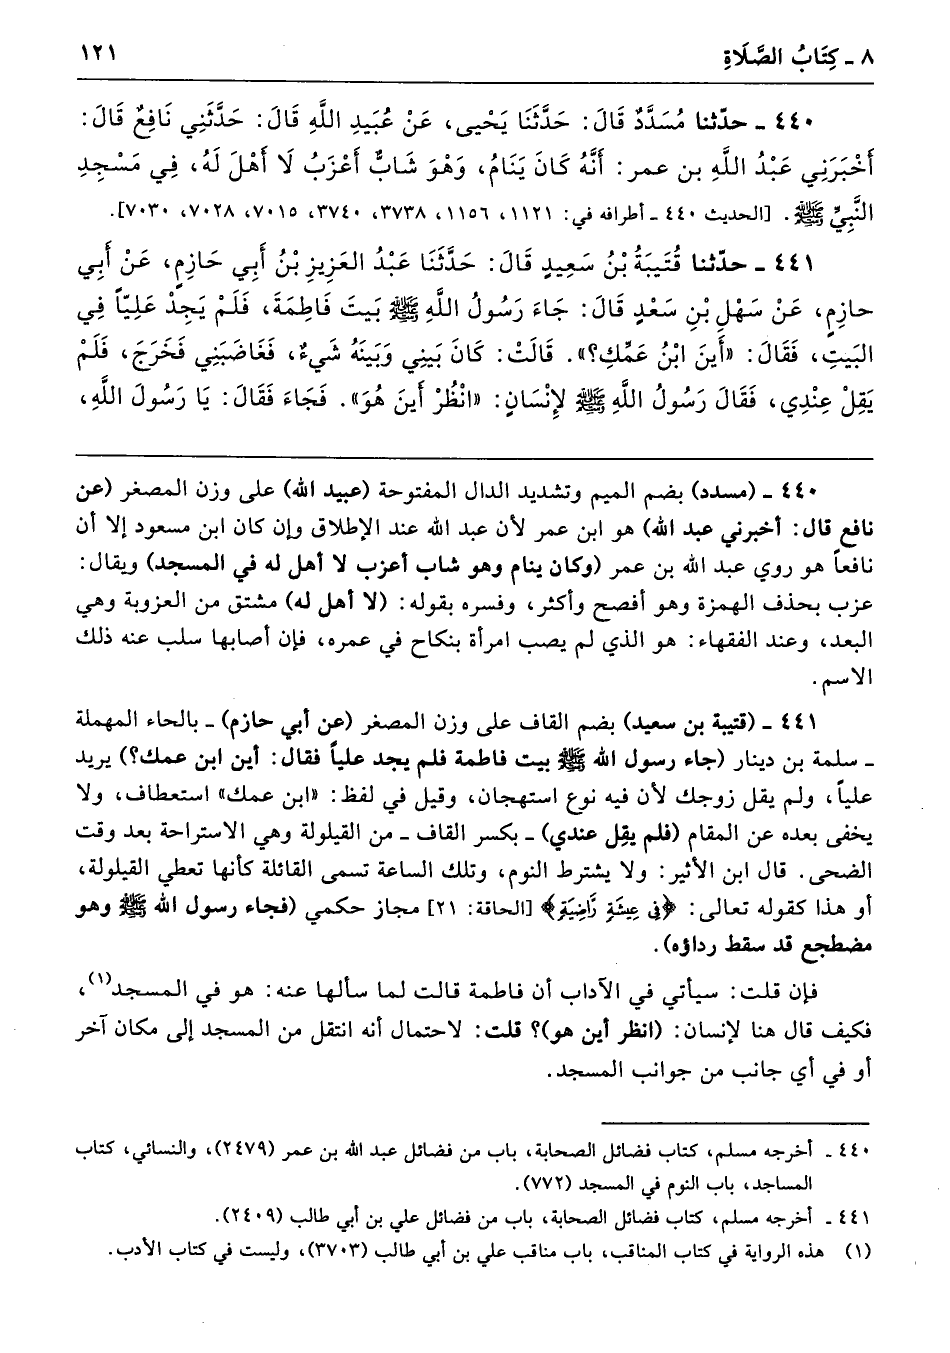 ٨ ـ كِتَابُ الصَّلَاةِ
١٢١
٤٤٠ ـ حدّثنا مُسَدَّدٌ قَالَ: حَدَّثَنَا يَحْيى، عَنْ عُبَيدِ اللَّهِ قَالَ: حَدَّثَنِي نَافِعٌ قَالَ:
أَخْبَرَنِي عَبْدُ اللَّهِ بن عمر: أَنَّهُ كَانَ يَنَامُ، وَهْوَ شَابٌّ أَعْزَبُ لَا أَهْلَ لَهُ، فِي مَسْجِدِ
النَّبِيِّ ﷺ. [الحديث ٤٤٠ ـ أطرافه في: ١١٢١، ١١٥٦، ٣٧٣٨، ٣٧٤٠، ٧٠١٥، ٧٠٢٨، ٧٠٣٠].
٤٤١ ـ حدّثنا قُتَيبَةُ بْنُ سَعِيدٍ قَالَ: حَدَّثَنَا عَبْدُ العَزِيزِ بْنُ أَبِي حَازِمٍ، عَنْ أَبِي
حازِمٍ، عَنْ سَهْلِ بْنِ سَعْدٍ قَالَ: جَاءَ رَسُولُ اللَّهِ ﷺ بَيتَ فَاطِمَةَ، فَلَمْ يَجِدْ عَلِيّاً فِي
البَيتِ، فَقَالَ: «أَينَ ابْنُ عَمِّكِ؟». قَالَتْ: كَانَ بَينِي وَبَينَهُ شَيءٌ، فَغَاضَبَنِي فَخَرَجَ، فَلَمْ
يَقِلْ عِنْدِي، فَقَالَ رَسُولُ اللَّهِ ﷺ لإِنْسَانٍ: «انْظُرْ أَينَ هُوَ». فَجَاءَ فَقَالَ: يَا رَسُولَ اللَّهِ،
٤٤٠ ـ (مسدد) بضم الميم وتشديد الدال المفتوحة (عبيد الله) على وزن المصغر (عن
نافع قال: أخبرني عبد الله) هو ابن عمر لأن عبد الله عند الإطلاق وإن كان ابن مسعود إلا أن
نافعاً هو روي عبد الله بن عمر (وكان ينام وهو شاب أعزب لا أهل له في المسجد) ويقال:
عزب بحذف الهمزة وهو أفصح وأكثر، وفسره بقوله: (لا أهل له) مشتق من العزوبة وهي
البعد، وعند الفقهاء: هو الذي لم يصب امرأة بنكاح في عمره، فإن أصابها سلب عنه ذلك
الاسم.
٤٤١ ـ (قتيبة بن سعيد) بضم القاف على وزن المصغر (عن أبي حازم) ـ بالحاء المهملة
ـ سلمة بن دينار (جاء رسول الله ﷺ بيت فاطمة فلم يجد علياً فقال: أين ابن عمك؟) يريد
علياً، ولم يقل زوجك لأن فيه نوع استهجان، وقيل في لفظ: «ابن عمك» استعطاف، ولا
يخفى بعده عن المقام (فلم يقِل عندي) ـ بكسر القاف ـ من القيلولة وهي الاستراحة بعد وقت
الضحى. قال ابن الأثير: ولا يشترط النوم، وتلك الساعة تسمى القائلة كأنها تعطي القيلولة،
أو هذا كقوله تعالى: ﴿فِي عِيشَةٍ رَّاضِيَةٍ﴾ [الحاقة: ٢١] مجاز حكمي (فجاء رسول الله ﷺ وهو
مضطجع قد سقط رداؤه).
فإن قلت: سيأتي في الآداب أن فاطمة قالت لما سألها عنه: هو في المسجد(١)،
فكيف قال هنا لإنسان: (انظر أين هو)؟ قلت: لاحتمال أنه انتقل من المسجد إلى مكان آخر
أو في أي جانب من جوانب المسجد.
٤٤٠ ـ أخرجه مسلم، كتاب فضائل الصحابة، باب من فضائل عبد الله بن عمر (٢٤٧٩)، والنسائي، كتاب
المساجد، باب النوم في المسجد (٧٧٢).
٤٤١ ـ أخرجه مسلم، كتاب فضائل الصحابة، باب من فضائل علي بن أبي طالب (٢٤٠٩).
(١) هذه الرواية في كتاب المناقب، باب مناقب علي بن أبي طالب (٣٧٠٣)، وليست في كتاب الأدب.